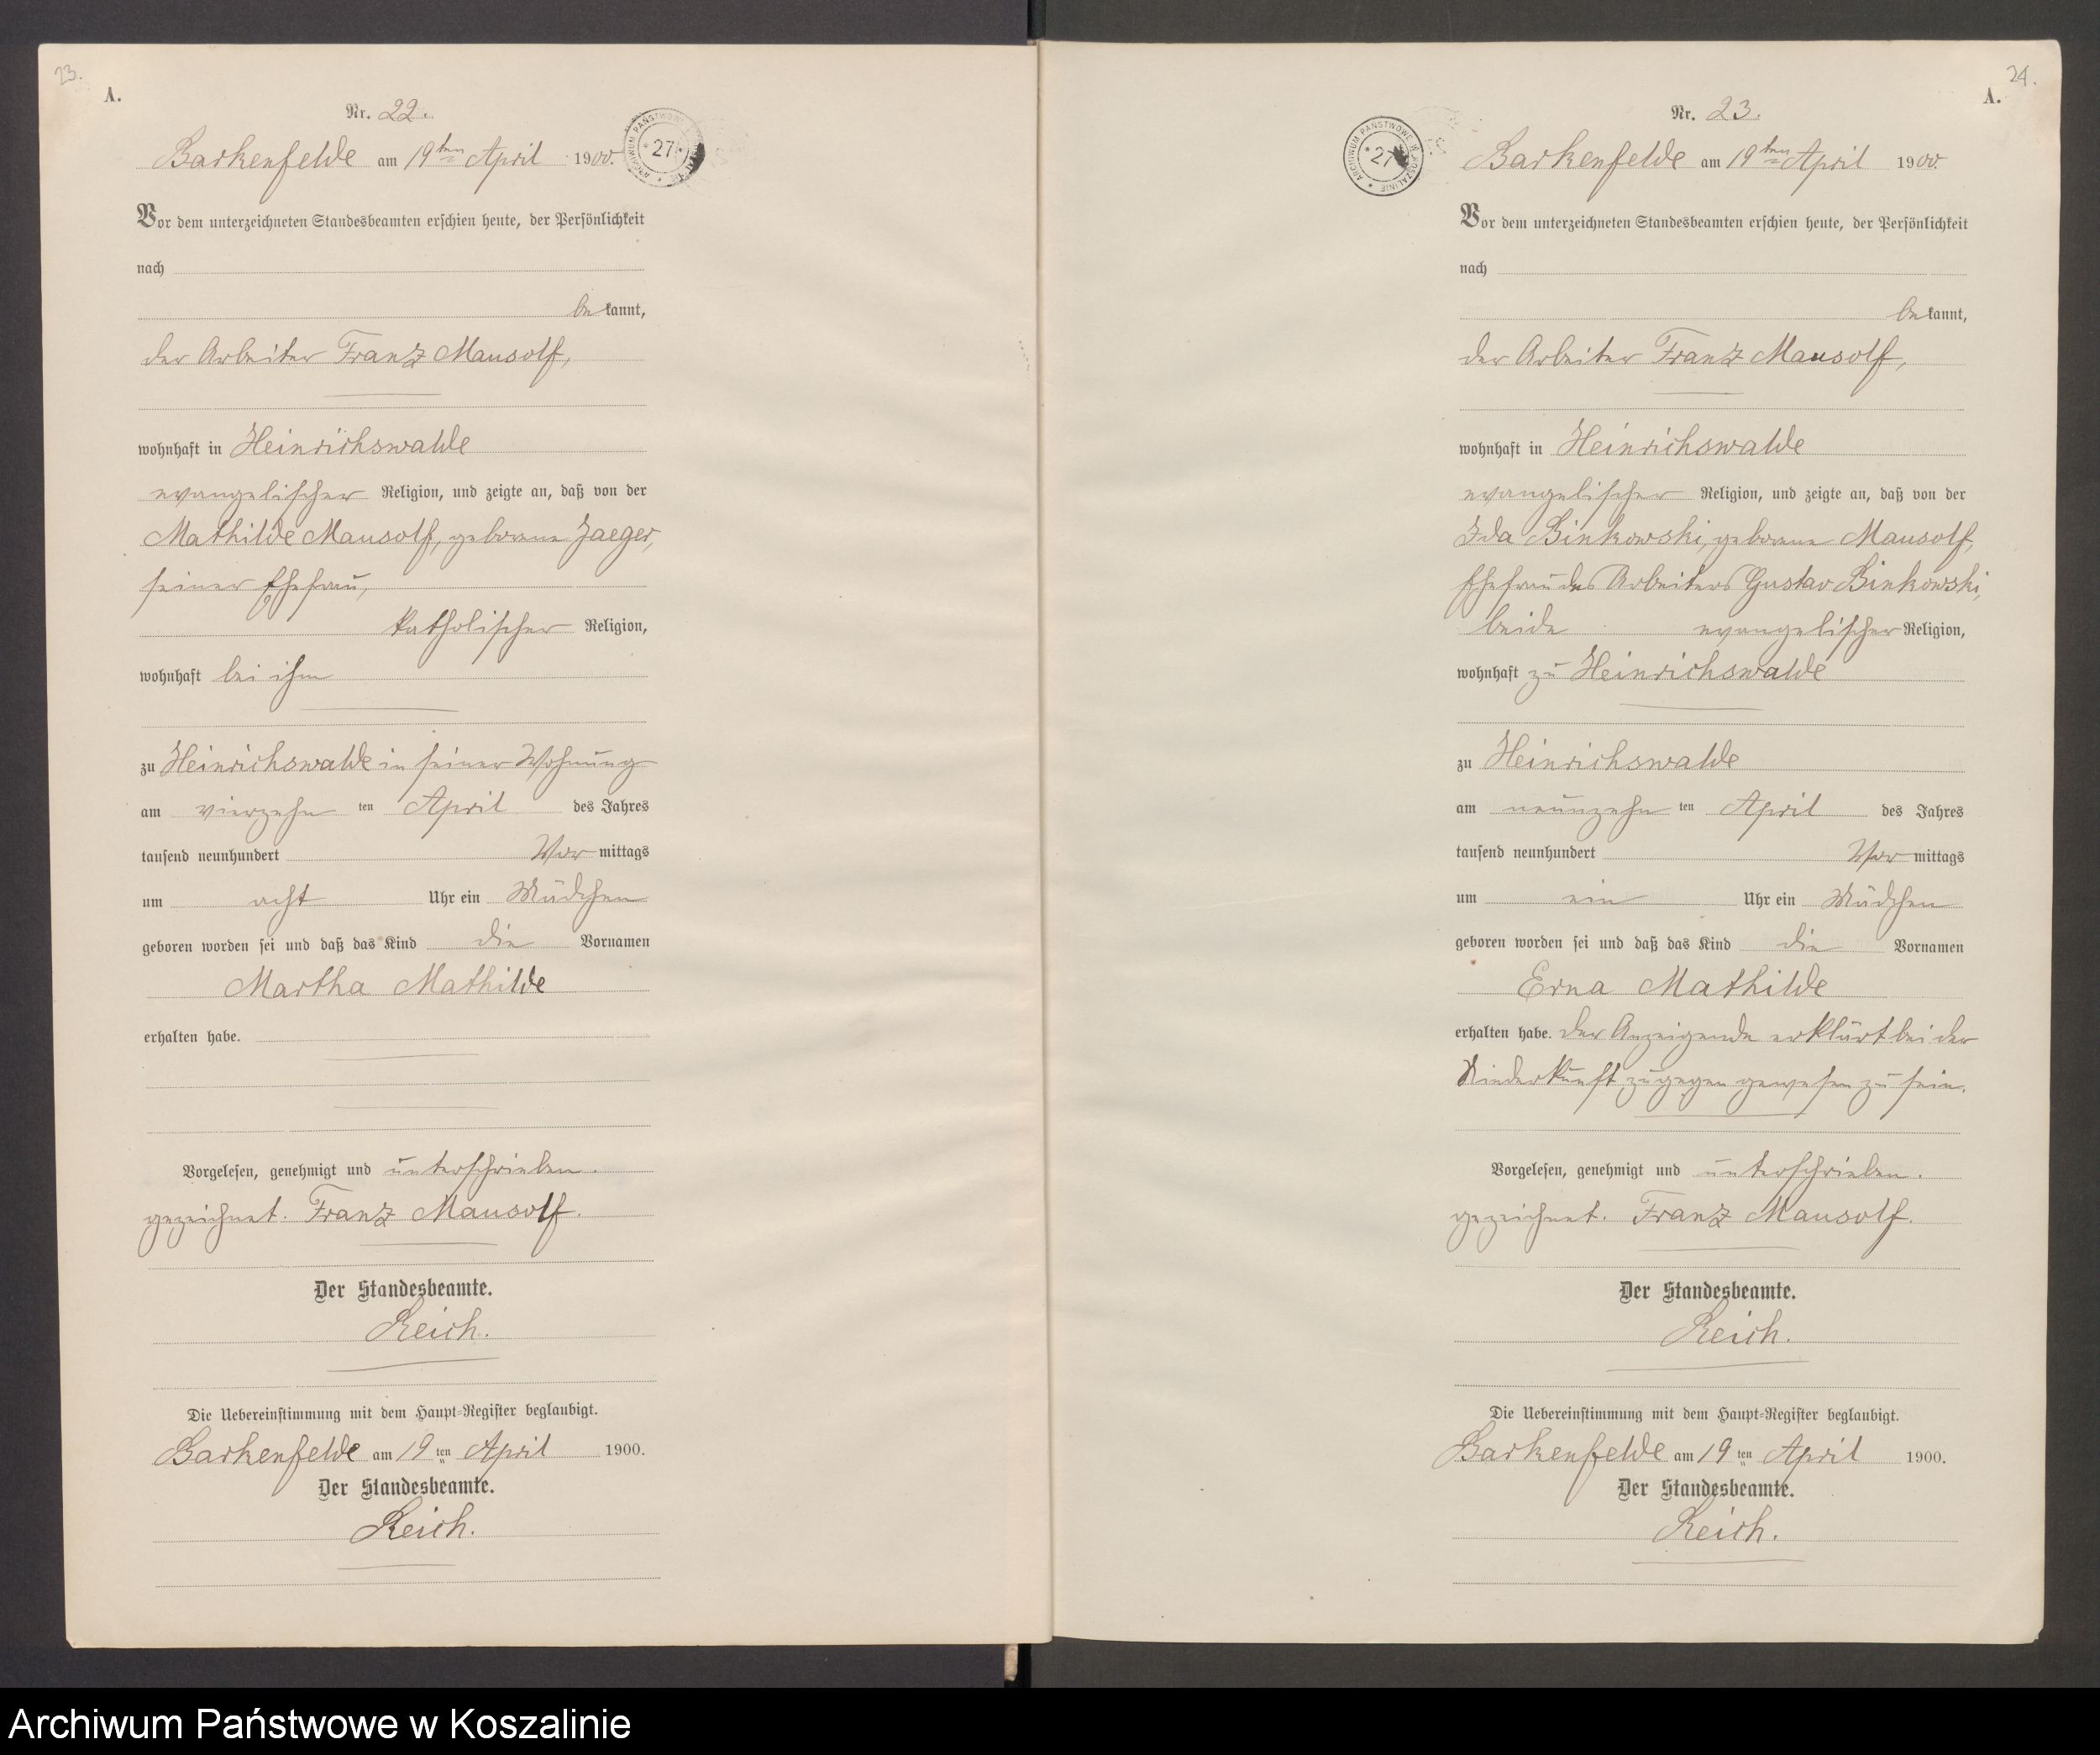 23.
A.
Nr. 22.
Barkenfelde am 19ten April 1900.
ARCHIWUM PAŃSTWOWE W KOSZALINIE * 27 *
Vor dem unterzeichneten Standesbeamten erschien heute, der Persönlichkeit
nach
bekannt,
der Arbeiter Franz Mausolf,
wohnhaft in Heinrichswalde
evangelischer Religion, und zeigte an, daß von der
Mathilde Mausolf, geborene Jaeger,
seiner Ehefrau,
katholischer Religion,
wohnhaft bei ihm
zu Heinrichswalde in seiner Wohnung
am vierzehn ten April des Jahres
tausend neunhundert Vor mittags
um acht Uhr ein Mädchen
geboren worden sei und daß das Kind die Vornamen
Martha Mathilde
erhalten habe.
Vorgelesen, genehmigt und unterschrieben.
gezeichnet. Franz Mausolf.
Der Standesbeamte.
Reich.
Die Uebereinstimmung mit dem Haupt-Register beglaubigt.
Barkenfelde am 19 ten April 1900.
Der Standesbeamte.
Reich.
24.
A.
Nr. 23.
ARCHIWUM PAŃSTWOWE W KOSZALINIE * 27
Barkenfelde am 19ten April 1900.
Vor dem unterzeichneten Standesbeamten erschien heute, der Persönlichkeit
nach
bekannt,
der Arbeiter Franz Mausolf,
wohnhaft in Heinrichswalde
evangelischer Religion, und zeigte an, daß von der
Ida Binkowski, geborene Mausolf,
Ehefrau des Arbeiters Gustav Binkowski,
beide evangelischer Religion,
wohnhaft zu Heinrichswalde
zu Heinrichswalde
am neunzehn ten April des Jahres
tausend neunhundert Vor mittags
um ein Uhr ein Mädchen
geboren worden sei und daß das Kind die Vornamen
Erna Mathilde
erhalten habe. Der Anzeigende erklärt bei der
Niederkunft zugegen gewesen zu sein.
Vorgelesen, genehmigt und unterschrieben.
gezeichnet. Franz Mausolf.
Der Standesbeamte.
Reich.
Die Uebereinstimmung mit dem Haupt-Register beglaubigt.
Barkenfelde am 19 ten April 1900.
Der Standesbeamte.
Reich.
Archiwum Państwowe w Koszalinie